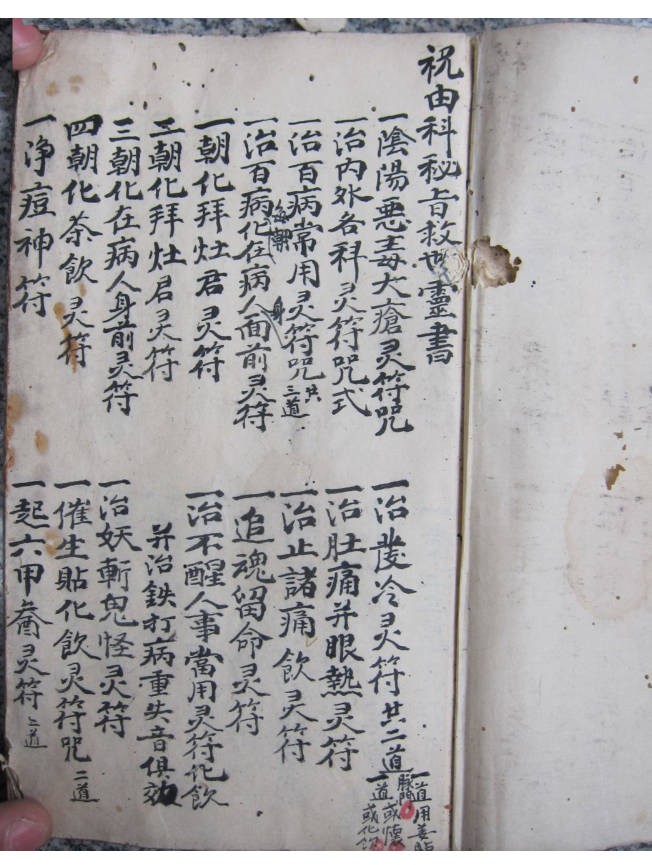 祝由科秘旨救世靈書
一陰陽惡毒大瘡灵符咒
一治內外各科灵符咒式
一治百病常用灵符咒共三道
一治百病化在病人面前灵符
海潮
身
一朝化拜灶君灵符
二朝化拜灶君灵符
三朝化在病人身前灵符
四朝化茶飲灵符
一淨痘神符
一治發冷灵符共二道
一道用姜貼脉門
一道或懷或化飲
一治肚痛并眼熱灵符
一治止諸痛飲灵符
一追魂留命灵符
一治不醒人事當用灵符化飲
并治鉄打病重失音俱效
一治妖斬鬼怪灵符
一催生貼化飲灵符咒二道
一起六甲灵符二道